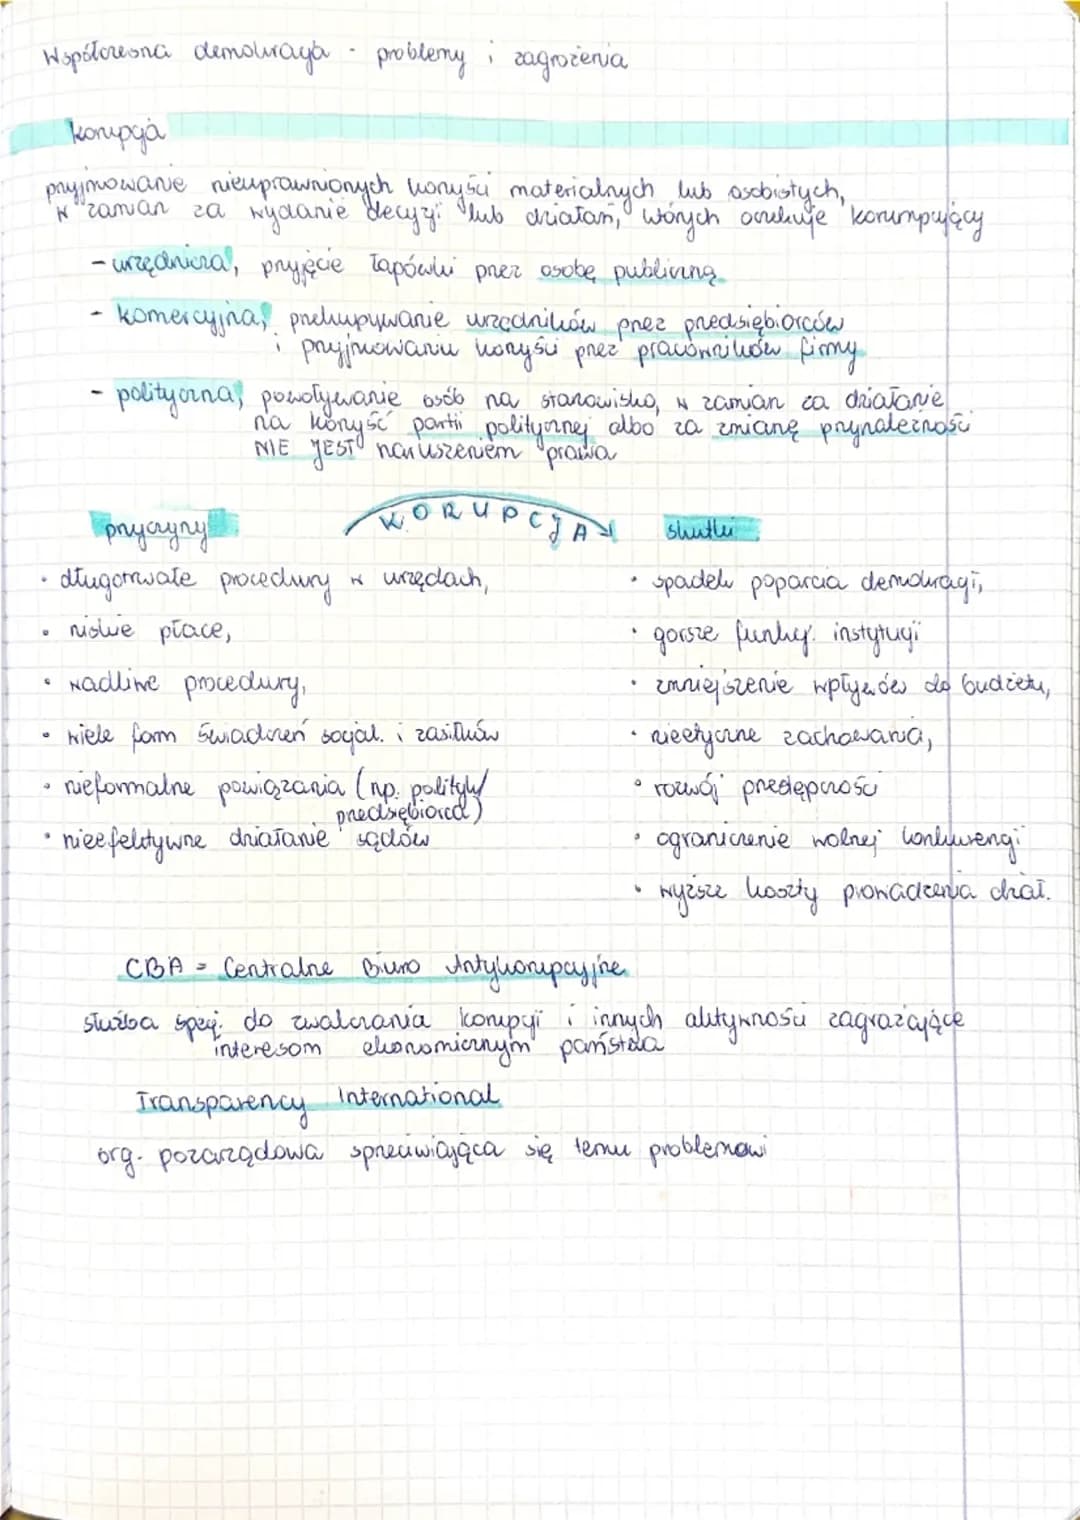 Współczesna demokracja - problemy i zagrożenia
korupcja
przyjmowanie nieuprawnionych korzyści materialnych lub osobistych,
w zamian za wydanie decyzji lub działań, których oczekuje korumpujący
- urzędnicza, przyjęcie łapówki przez osobę publiczną
- komercyjna, przekupywanie urzędników przez przedsiębiorców
i przyjmowaniu korzyści przez pracowników firmy
- polityczna, powoływanie osób na stanowiska, w zamian za działanie
na korzyść partii politycznej albo za zmianę przynależności
NIE JEST naruszeniem prawa
przyczyny KORUPCJA skutki
• długotrwałe procedury w urzędach,
• niskie płace,
• wadliwe procedury,
• wiele form świadczeń socjal. i zasiłków
• nieformalne powiązania (np. polityk/
przedsiębiorca)
• nieefektywne działanie sądów
• spadek poparcia demokracji,
• gorsze funkcj. instytucji
• zmniejszenie wpływów do budżetu,
• nieetyczne zachowania,
• rozwój przestępczości
• ograniczenie wolnej konkurencji
• wyższe koszty prowadzenia dział.
CBA = Centralne Biuro Antykorupcyjne
służba specj. do zwalczania korupcji i innych aktywności zagrażające
interesom ekonomicznym państwa
Transparency International
org. pozarządowa sprzeciwiająca się temu problemowi